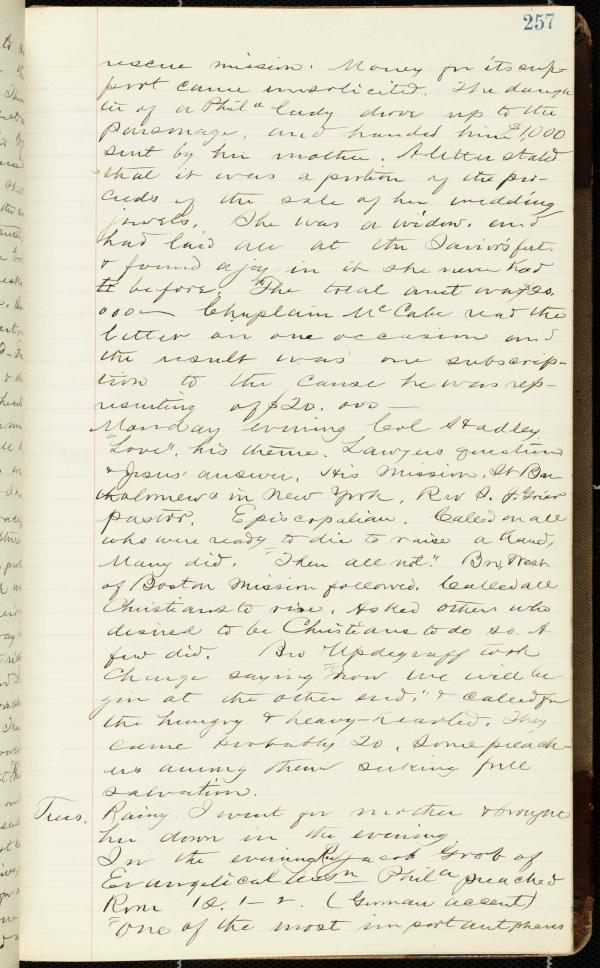 257
rescue mission. Money for its sup-
port came unsolicited. The daugh
ter of a Phila lady drove up to the
parsonage, and handed him $1,000
sent by her mother. A letter stated
that it was a portion of the pro-
ceeds of the sale of her wedding
jewels. She was a widow, and
had laid all at the Savior's feet.
& found a joy in it she never had
before. The total amt was $20.
000— Chaplain McCabe read the
letter on one occasion and
the result was one subscrip-
tion to the cause he was rep-
resenting of $20.000—
Monday evening Col Hadley
"Love", his theme. Lawyers question
& Jesus' answer. His mission, St Bar
tholomew's in New York, Rev
pastor. Episcopalian. Called on all
who were ready to die to raise a hand,
Many did. "Then all not." Bro,
of Boston Mission followed. Called all
Christians to rise. Asked others who
desired to be Christians to do so. A
few did. Bro Updegraff took
charge saying "now we will be-
gin at the other end," & called for
the hungry & heavy-hearted. They
came probably 20, some preach-
ers among them seeking full
salvation.
Tues. Rainy. I went for mother & brought
her down in the evening.
In the evening Rev Jacob Grob of
Evangelical Assn Phila preached
Rom 12. 1-2. (German accent)
"One of the most important